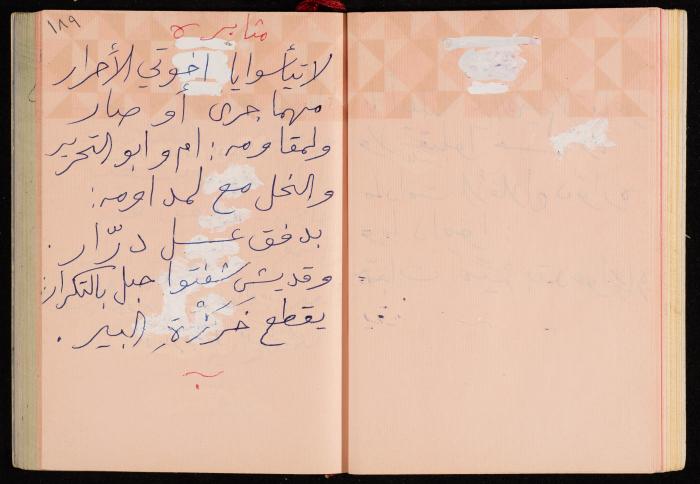 ١٨٩
مثابره
لا تيأسوا يا اخوتي الأحرار
مهما جرى أو صار
ولمقاومه: ام وابو التحرير
والنحل مع لمداومه:
بدفق عسل درّار.
وقديش شفتوا حبل بالتكرار:
يقطع خَرَزْةِ البير.